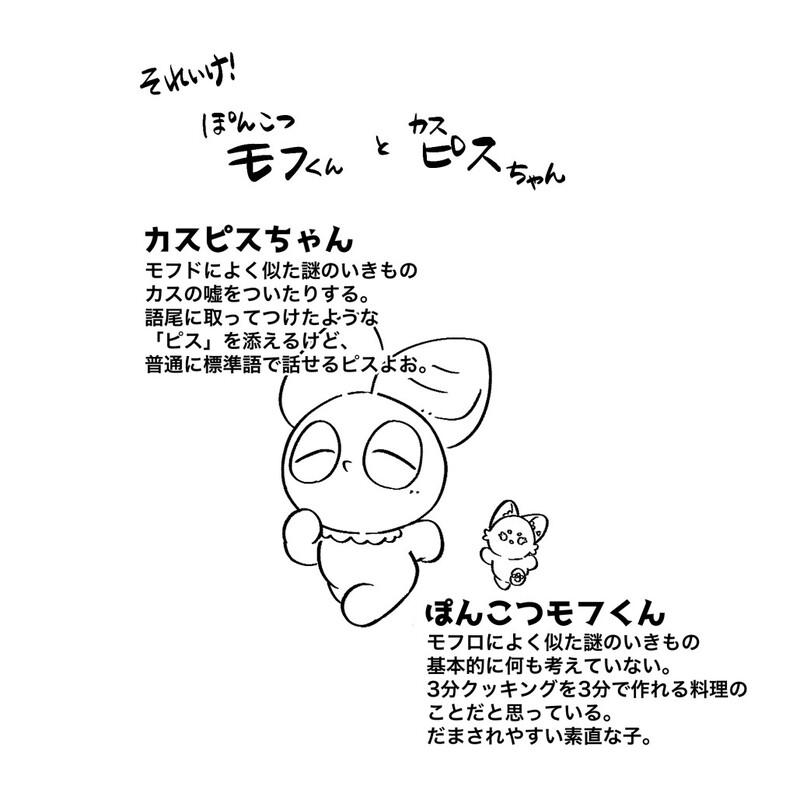 それいけ!
ぽんこつ
モフくん と カス
ピスちゃん
カスピスちゃん
モフドによく似た謎のいきもの
カスの嘘をついたりする。
語尾に取ってつけたような
「ピス」を添えるけど、
普通に標準語で話せるピスよお。
ぽんこつモフくん
モフロによく似た謎のいきもの
基本的に何も考えていない。
3分クッキングを3分で作れる料理の
ことだと思っている。
だまされやすい素直な子。